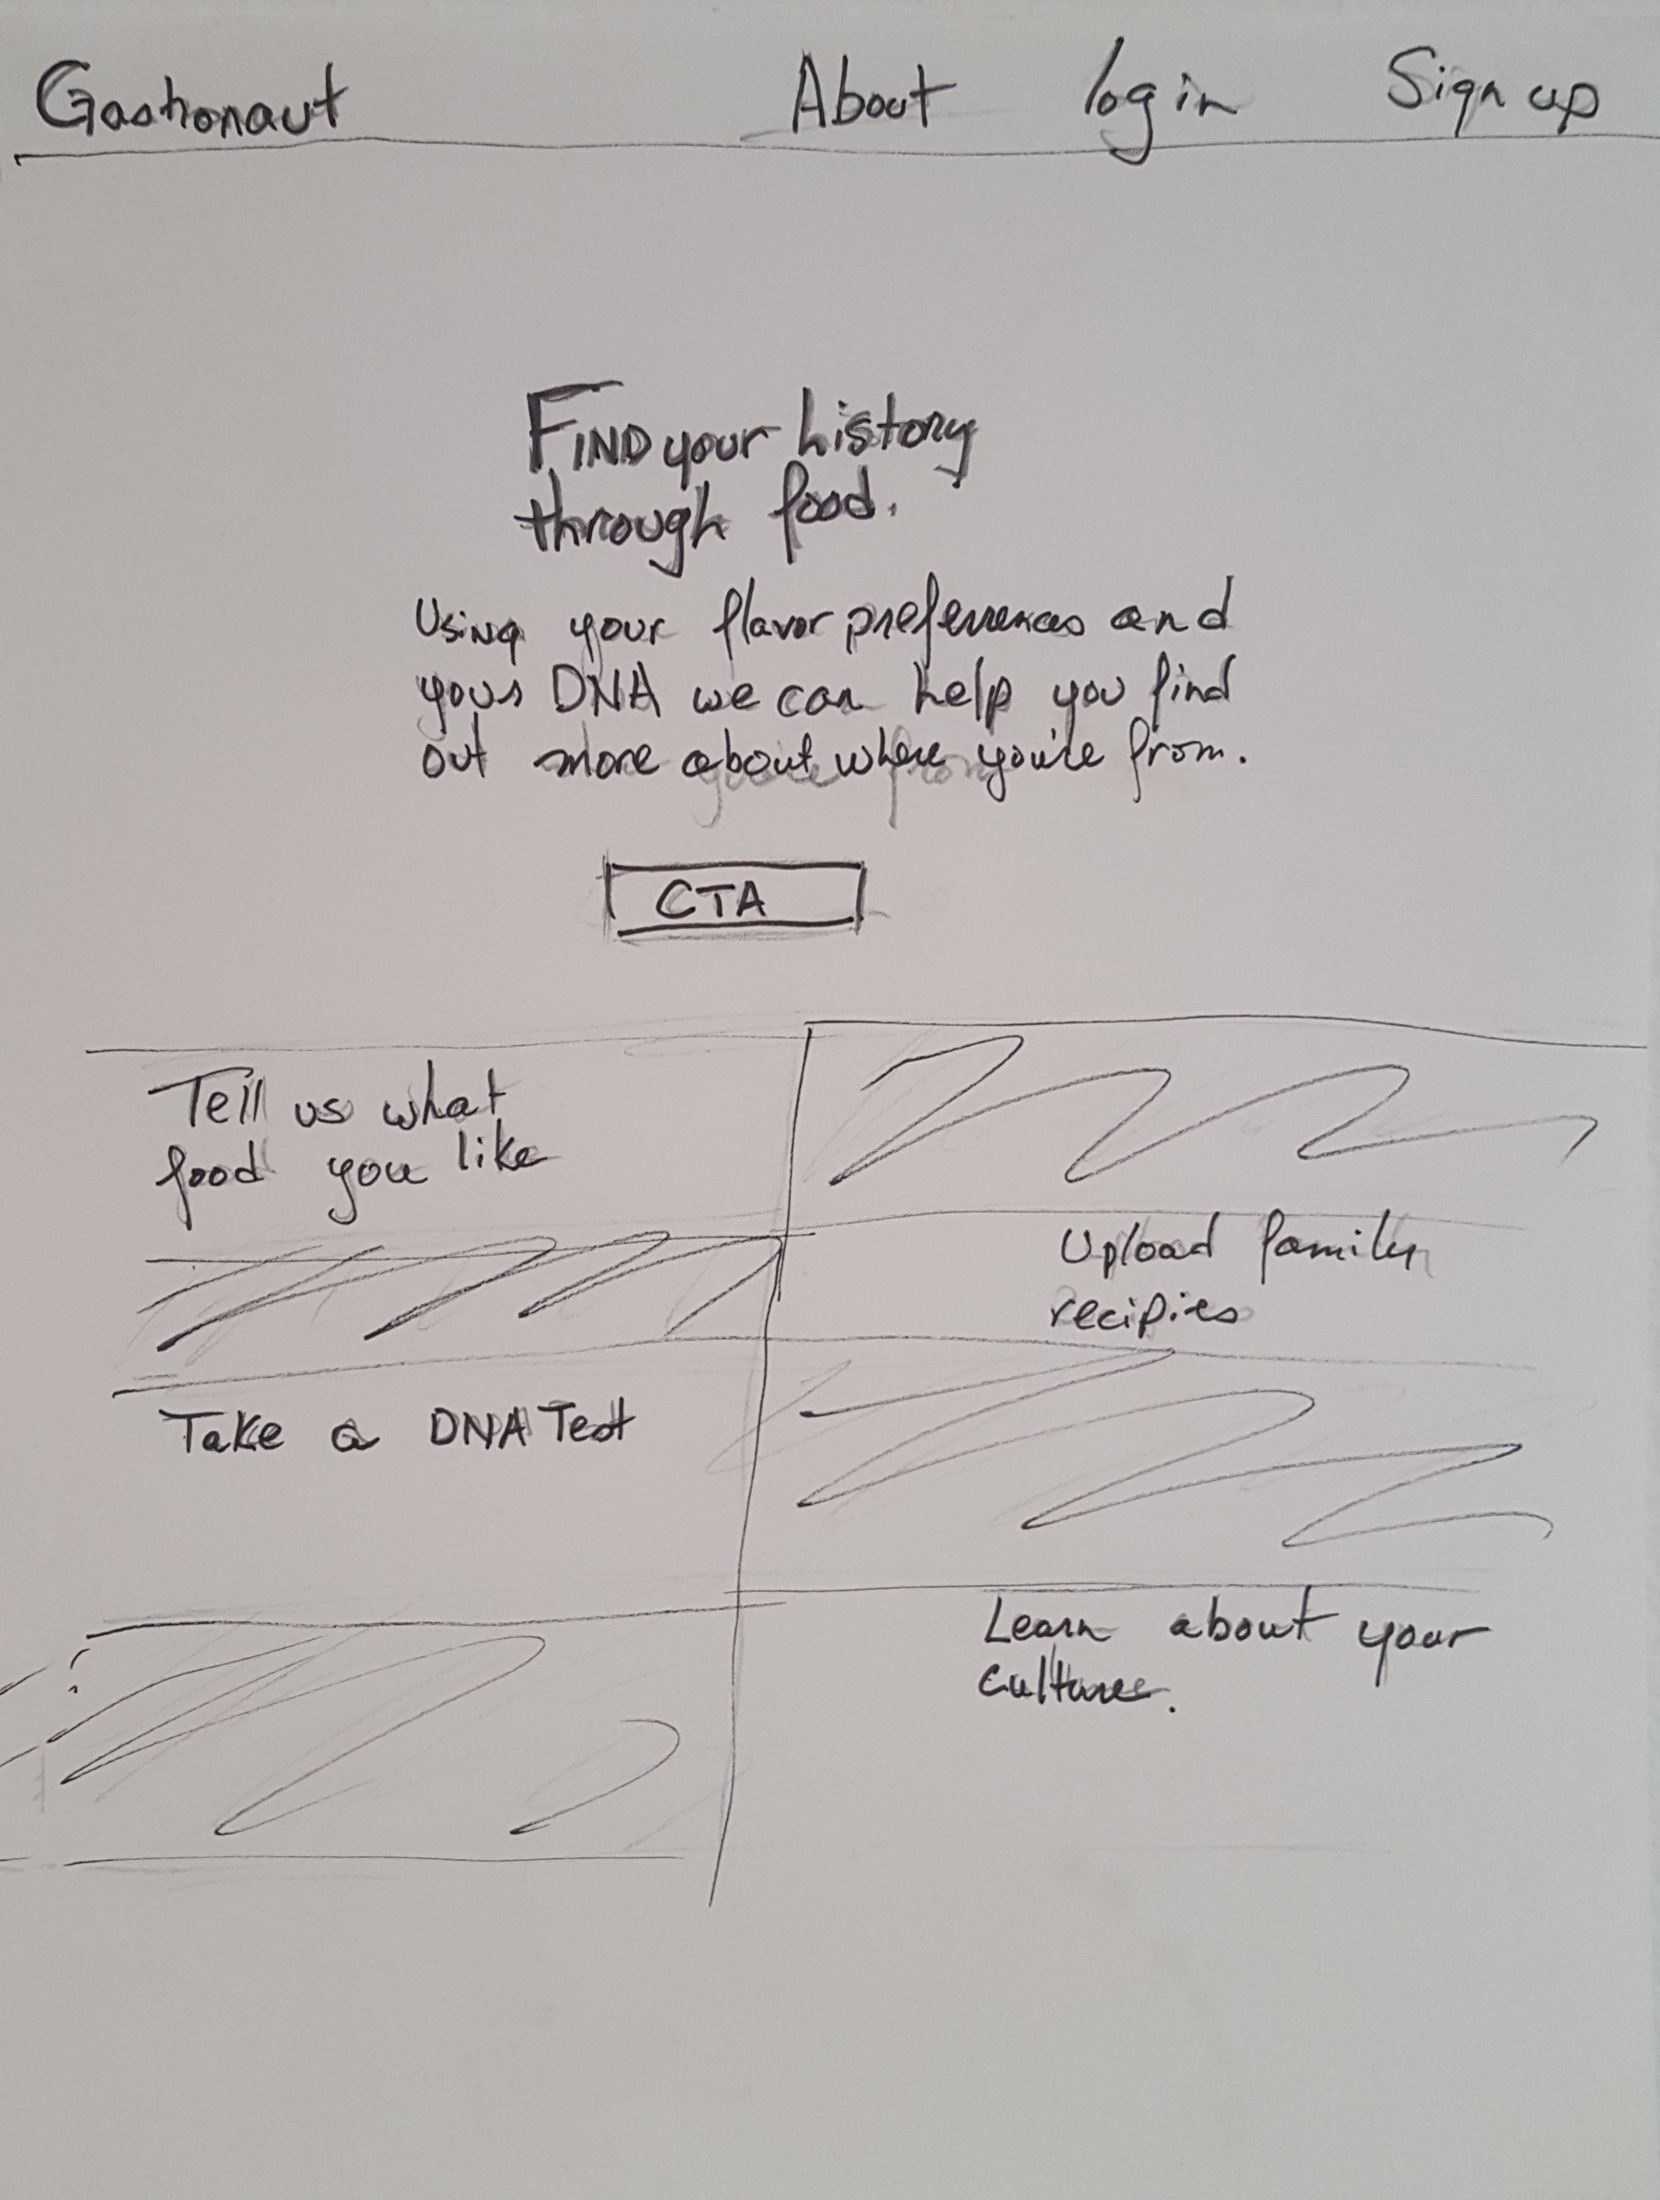 Gastronaut About log in Sign up
FIND your history
through food.
Using your flavor preferences and
your DNA we can help you find
out more about where you're from.
CTA
Tell us what
food you like
Upload family
recipies
Take a DNA Test
Learn about your
culture.